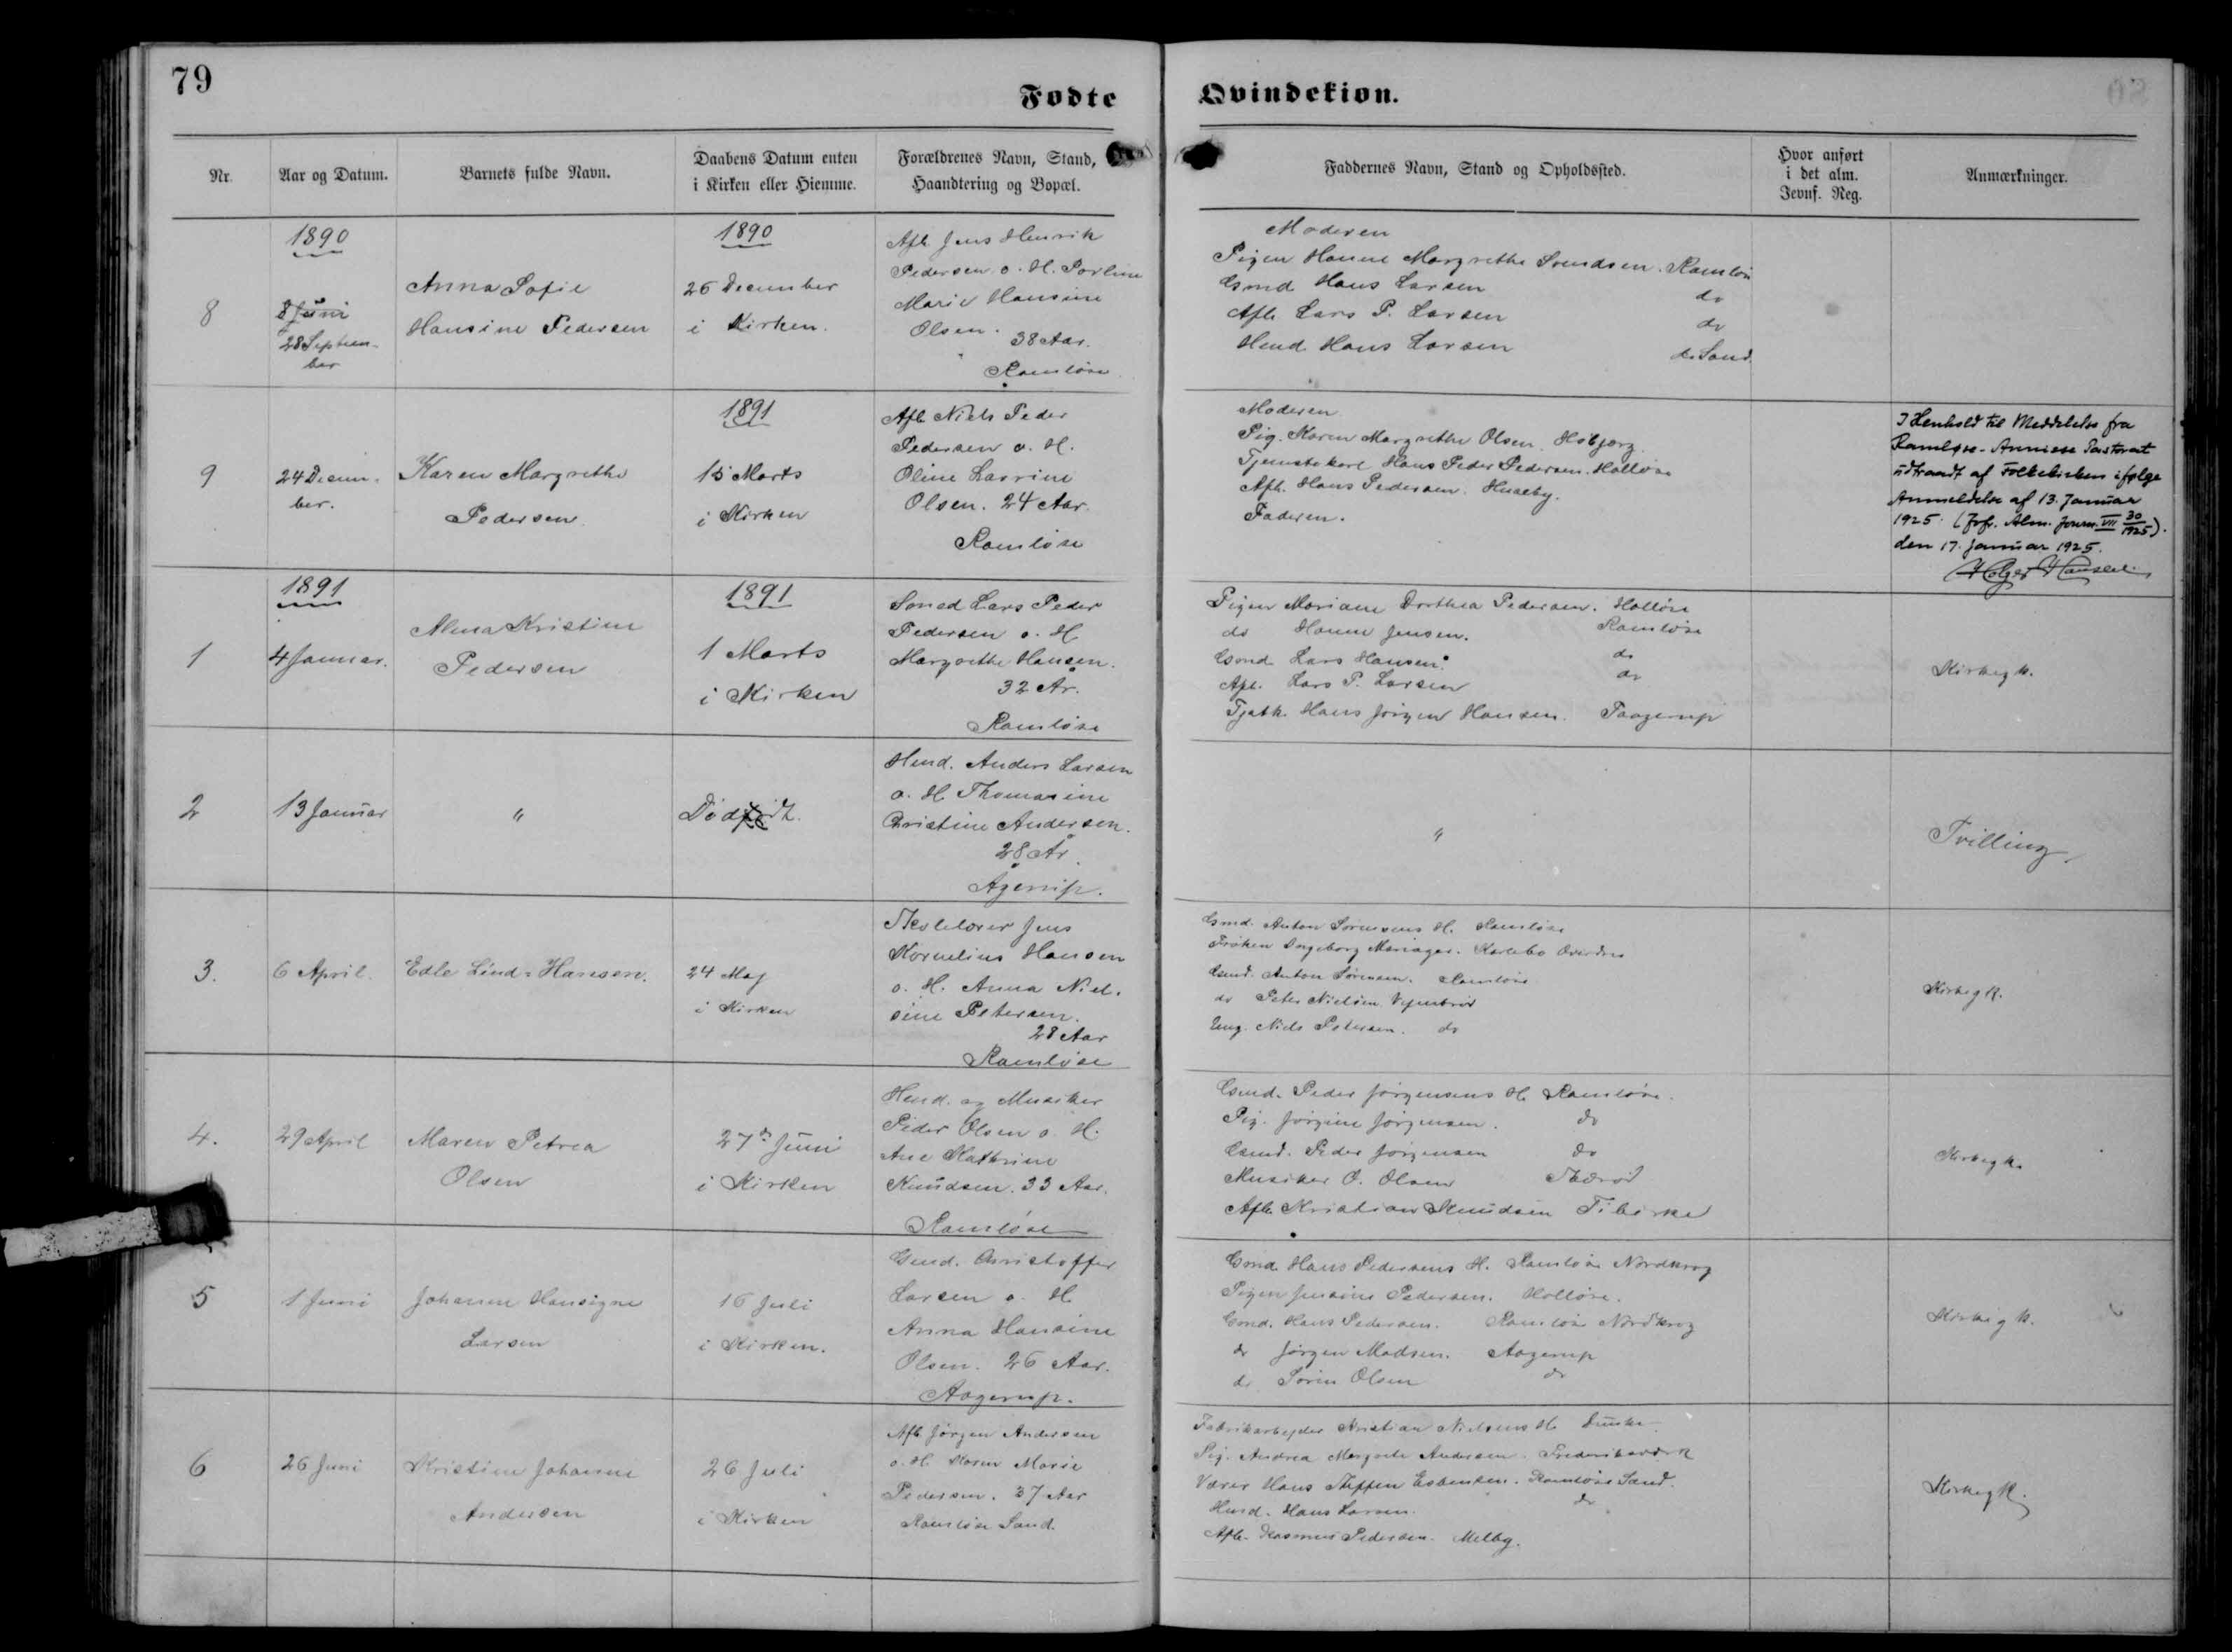 79
Fødte
Qvindekiøn.
Nr.
Aar og Datum.
Barnets fulde Navn.
Daabens Datum enten
i Kirken eller Hiemme.
Forældrenes Navn, Stand,
Haandtering og Bopæl.
Faddernes Navn, Stand og Opholdssted.
Hvor anført
i det alm.
Jevnf. Reg.
Anmærkninger.
8
1890
8 Juni
28 Septem-
ber
Anna Sofie
Hansine Pedersen
1890
26 December
i Kirken.
Afb. Jens Henrik
Pedersen o. H. Pouline
Marie Hansine
Olsen.
38 Aar.
Ramløse
Moderen
Pigen Hanne Margrethe Svendsen. Ramløse
Gmd Hans Larsen do
Afb. Lars P. Larsen do
Hmd. Hans Larsen do Sand.
9
24 Decem-
ber.
Karen Margrethe
Pedersen
1891
15 Marts
i Kirken
Afb Niels Peder
Pedersen o. H.
Oline Laurine
Olsen. 24 Aar.
Ramløse
Moderen
Pig. Karen Margrethe Olsen. Høbjerg
Tjenestekarl Hans Peder Pedersen. Holløse
Afb. Hans Pedersen. Huseby.
Faderen.
I Henhold til Meddelelse fra
Ramløse-Annisse Pastorat
udtraadt af Folkekirken ifølge
Anmeldelse af 13. Januar
1925. (Jvfr. Alm. Journ. VII 30/1925).
den 17. Januar 1925.
Holger Hansen
1
1891
4 Januar.
Alma Kristine
Pedersen
1891
1 Marts
i Kirken
Smed Lars Peder
Pedersen o. H
Margrethe Hansen.
32 År.
Ramløse
Pigen Mariane Dorthea Pedersen. Holløse
do Hanne Jensen. Ramløse
Gmd. Lars Hansen. do
Afb. Lars P. Larsen do
Tjstk. Hans Jørgen Hansen. Taagerup
Kirkegk.
2
13 Januar
"
Dødfødt.
Hmd. Anders Larsen
o. H. Thomasine
Christine Andersen.
28 År.
Agerup.
"
Tvilling
3.
6 April.
Edle Lind-Hansen.
24 Maj
i Kirken
Skolelærer Jens
Kornelius Hansen
o. H. Anna Niel-
sine Petersen.
28 Aar
Ramløse
Gmd. Anton Sørensens H. Ramløse
Frøken Ingeborg Mariager. Karlebo Overdrev
Gmd. Anton Sørensen. Ramløse
do Peter Nielsen. Vejenbrød
Ung. Niels Petersen. do
Kirkegk.
4.
29 April
Maren Petrea
Olsen
27de Juni
i Kirken
Hmd. og Musiker
Peder Olsen o. H.
Ane Kathrine
Knudsen. 33 Aar.
Ramløse
Gmd. Peder Jørgensens H. Ramløse.
Pig. Jørgine Jørgensen. do
Gmd. Peder Jørgensen do
Musiker O. Olsen Skærød
Afb. Kristian Knudsen Tibirke
Kirkegk.
5
1 Juni
Johanne Hansigne
Larsen
16 Juli
i Kirken.
Gmd. Christoffer
Larsen o. H.
Anna Hansine
Olsen. 26 Aar.
Aagerup.
Gmd. Hans Pedersens H. Ramløse Nordkrog
Pigen Jensine Pedersen. Holløse.
Gmd. Hans Pedersen. Ramløse Nordkrog
do Jørgen Madsen. Aagerup
do Søren Olsen do
Kirkegk.
6
26 Juni
Kristine Johanne
Andersen
26 Juli
i Kirken
Afb. Jørgen Andersen
o. H. Karen Marie
Pedersen. 37 Aar
Ramløse Sand.
Fabrikarbejder Kristian Nielsens H.
Pig. Andrea Margrete Andersen. Frederiksværk
Væver Hans Steffen Esbensen. Ramløse Sand.
Hmd. Hans Larsen. do
Afb. Rasmus Pedersen. Melby.
Kirkegk.